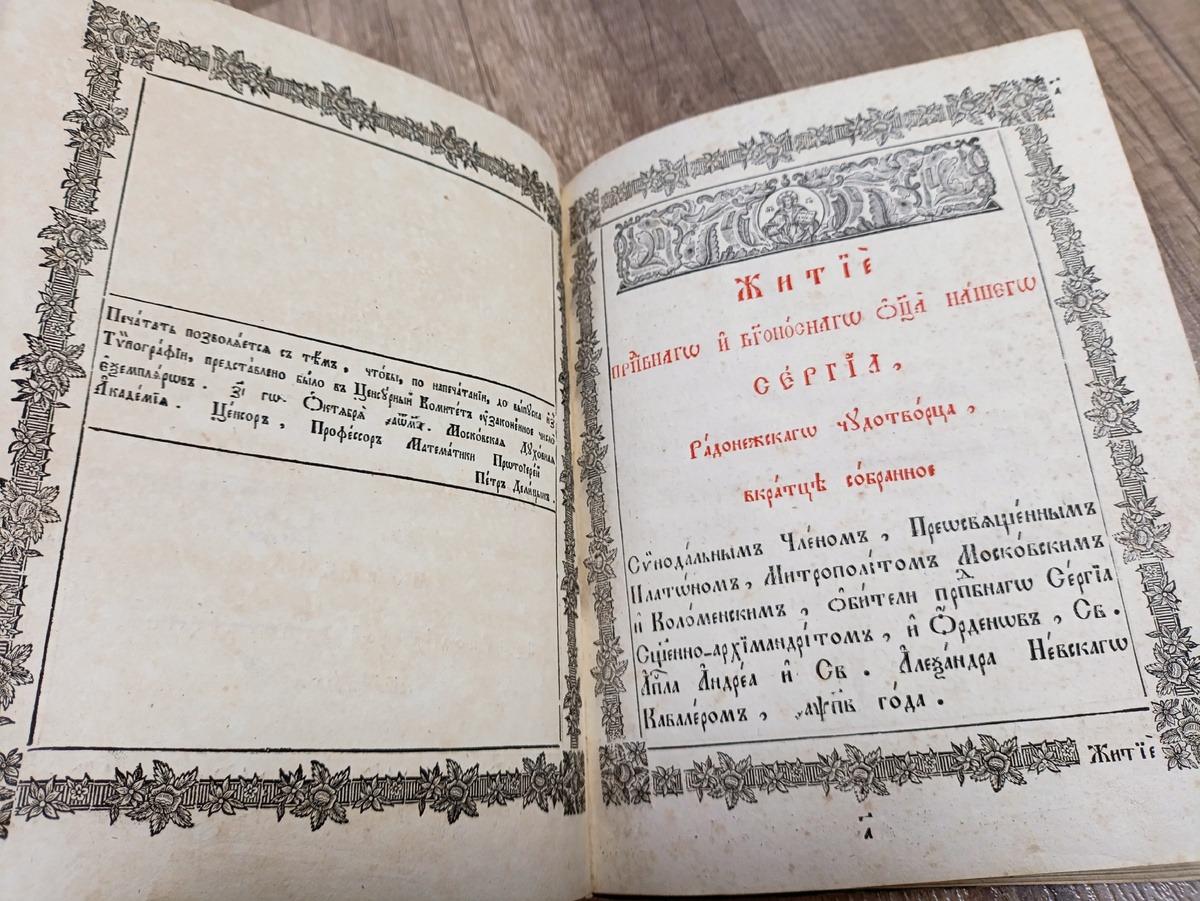 Печа́тать позволѧ́ется съ тѣ́мъ, что́бы, по напеча́танїи, до вы́пꙋска и҆з̾
Тѷпогра́фїи, предста́влено бы́ло въ Ценсꙋ́рный Комите́тъ ᲂу҆зако́ненное число̀
є҆ѯемплѧ́рѡвъ. з҃і гѡ. Ѻ҆ктѧбрѧ̀ Моско́вскаѧ Дꙋхо́внаѧ
А҆каде́мїѧ. Це́нсоръ, Профе́ссоръ Матема́тики Протоїере́й
Пе́тръ Дели́цынъ.
҃а
Житїѐ
прпⷣбнагѡ и҆ бг҃оно́снагѡ ѻ҆ц҃а̀ на́шегѡ
Се́ргїа,
Ра́донежскагѡ чꙋдотво́рца,
вкра́тцѣ со́бранное
Сѷнода́льнымъ Чле́номъ, Преѡсвѧще́ннымъ
Плато́номъ, Митрополі́томъ Моско́вскимъ
и҆ Коло́менскимъ, ѻ҆би́тели прпⷣбнагѡ Се́ргїа
Сщ҃е́нно-архїмандрі́томъ, и҆ Ѻ҆́рденѡвъ, Св.
А҆пⷭ҇ла А҆ндре́а и҆ Св. А҆леѯа́ндра Не́вскагѡ
Кавале́ромъ, ҂аѱп҃в го́да.
Житїѐ
҃а